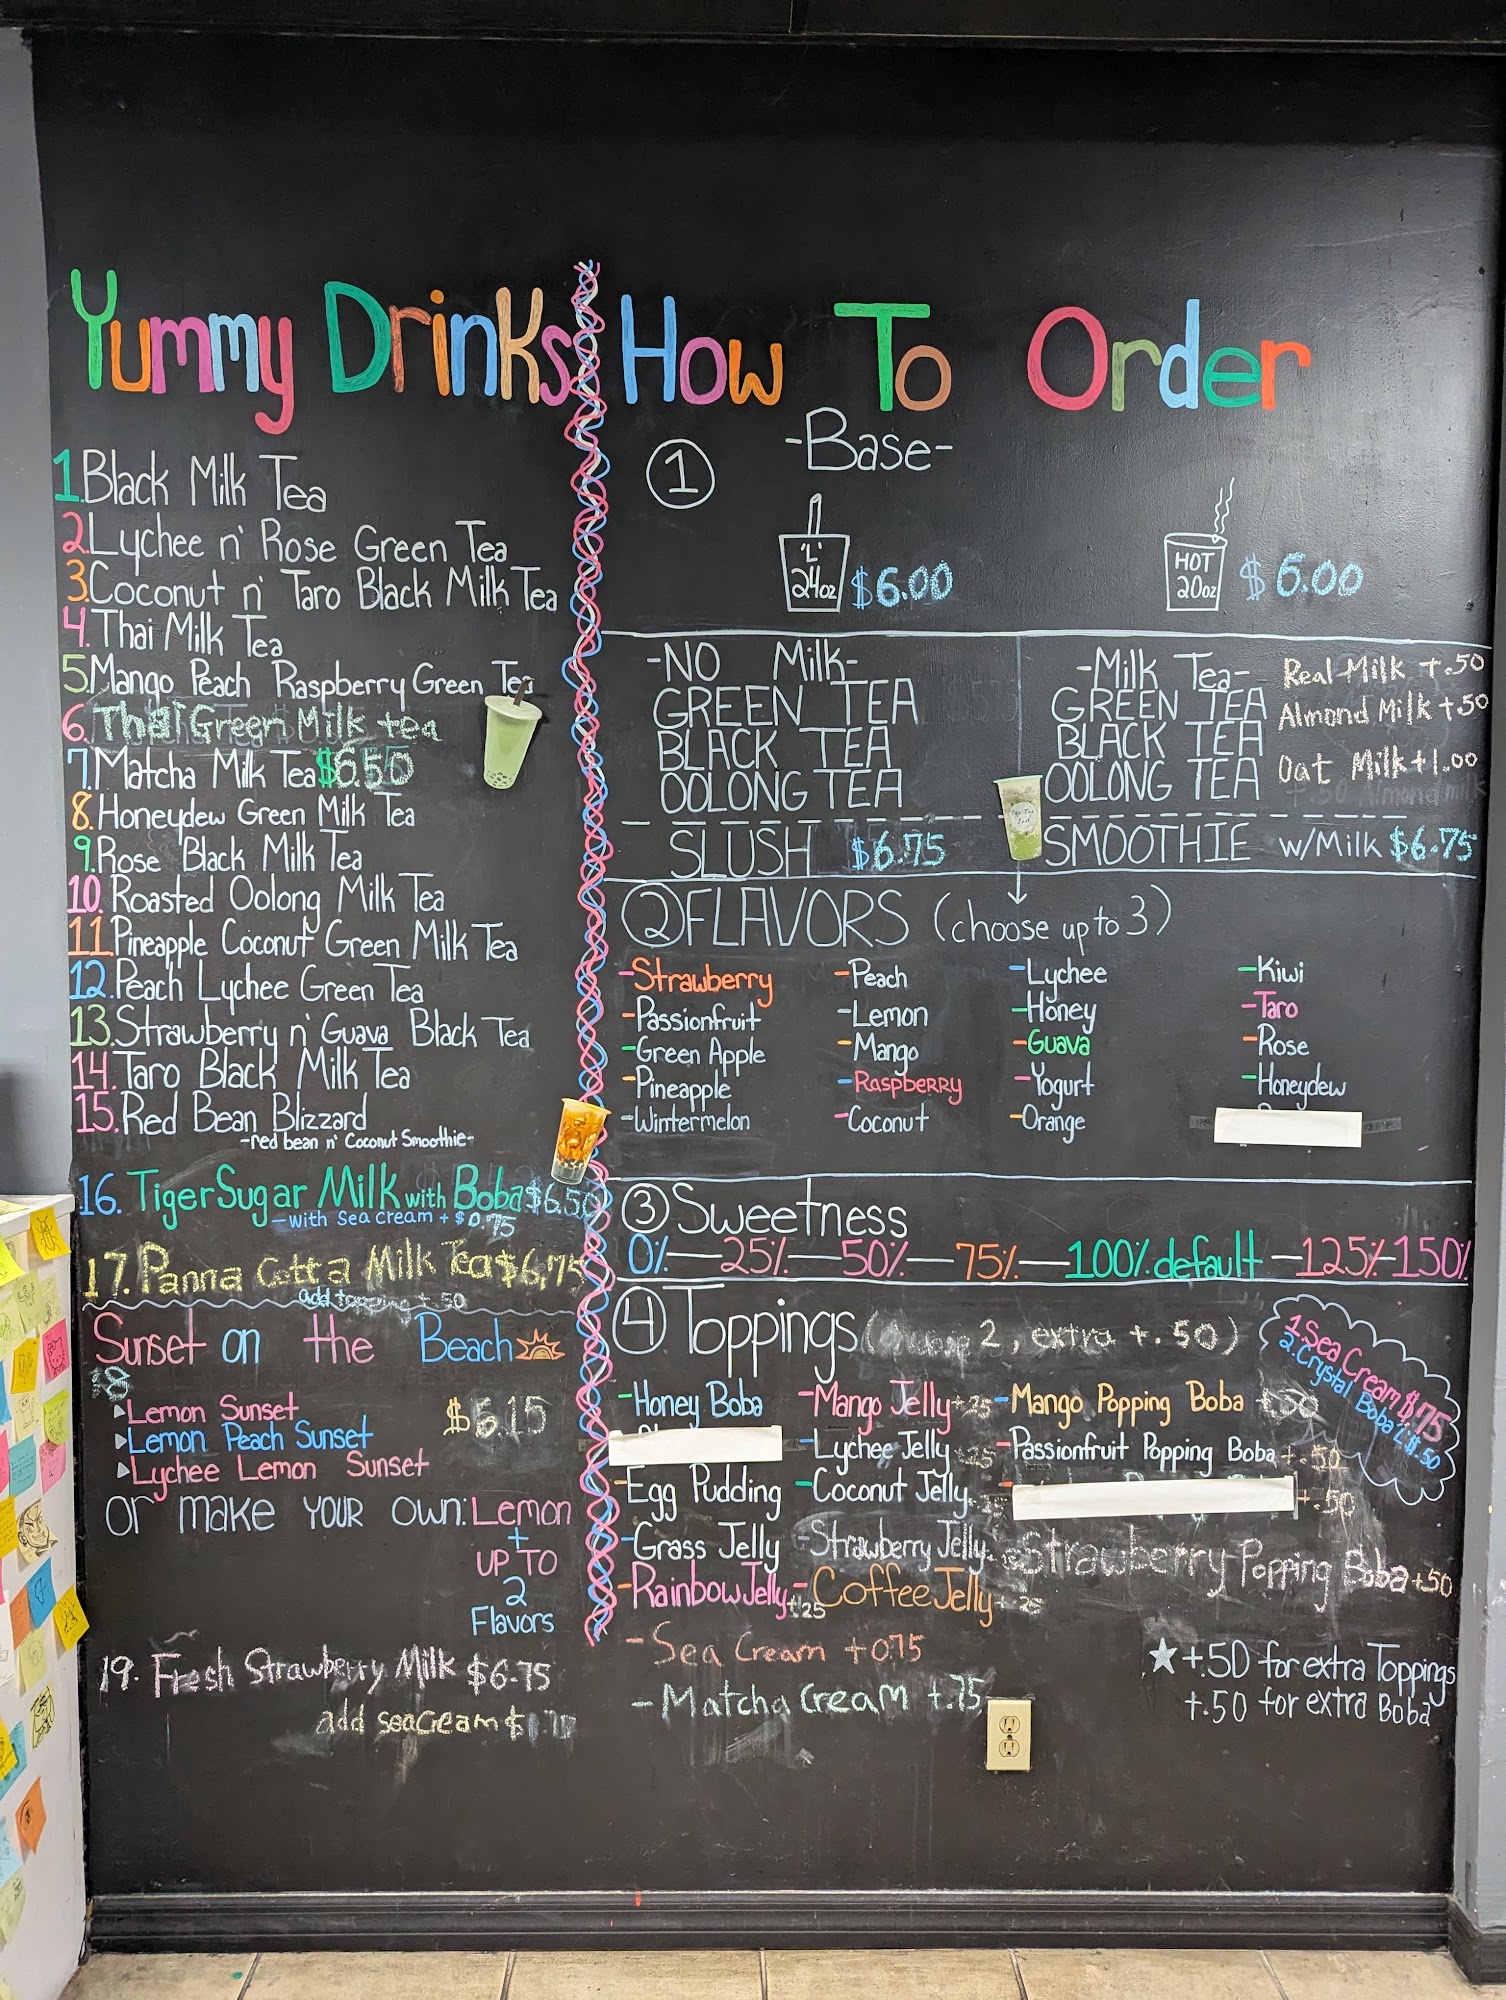 Yummy Drinks
1. Black Milk Tea
2. Lychee n' Rose Green Tea
3. Coconut n' Taro Black Milk Tea
4. Thai Milk Tea
5. Mango Peach Raspberry Green Tea
6. Thai Green Milk tea
7. Matcha Milk Tea $6.50
8. Honeydew Green Milk Tea
9. Rose Black Milk Tea
10. Roasted Oolong Milk Tea
11. Pineapple Coconut Green Milk Tea
12. Peach Lychee Green Tea
13. Strawberry n' Guava Black Tea
14. Taro Black Milk Tea
15. Red Bean Blizzard
-red bean n' Coconut Smoothie-
16. Tiger Sugar Milk with Boba $6.50
-with Sea cream + $0.75
17. Panna Cotta Milk Tea $6.75
add topping +.50
Sunset on the Beach
18
Lemon Sunset
Lemon Peach Sunset
Lychee Lemon Sunset
$6.15
Or make YOUR OWN: Lemon
+
UP TO
2
Flavors
19. Fresh Strawberry Milk $6.75
add seacream
How To Order
1 -Base-
'L'
24oz $6.00
HOT
20oz $6.00
-NO Milk-
GREEN TEA
BLACK TEA
OOLONG TEA
SLUSH $6.75
-Milk Tea-
GREEN TEA
BLACK TEA
OOLONG TEA
Real Milk +.50
Almond Milk +50
Oat Milk +1.00
+.50 Almond milk
SMOOTHIE w/Milk $6.75
2 FLAVORS (choose up to 3)
-Strawberry
-Passionfruit
-Green Apple
-Pineapple
-Wintermelon
-Peach
-Lemon
-Mango
-Raspberry
-Coconut
-Lychee
-Honey
-Guava
-Yogurt
-Orange
-Kiwi
-Taro
-Rose
-Honeydew
3 Sweetness
0%—25%—50%—75%—100% default—125%-150%
4 Toppings (choose 2, extra +.50)
-Honey Boba
-Egg Pudding
-Grass Jelly
-Rainbow Jelly +.25
-Mango Jelly +.25
-Lychee Jelly +.25
-Coconut Jelly
-Strawberry Jelly
-Coffee Jelly +.25
-Mango Popping Boba +.50
-Passionfruit Popping Boba +.50
+.50
Strawberry Popping Boba +.50
-Sea Cream +0.75
-Matcha Cream +.75
1. Sea Cream $.75
2. Crystal Boba $.50
+.50 for extra Toppings
+.50 for extra Boba